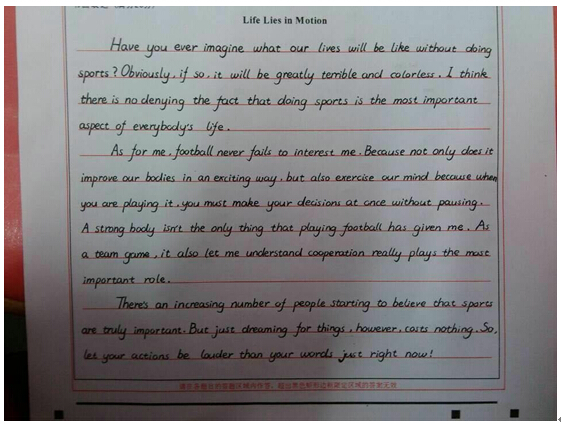 Life Lies in Motion
Have you ever imagine what our lives will be like without doing
sports? Obviously, if so, it will be greatly terrible and colorless. I think
there is no denying the fact that doing sports is the most important
aspect of everybody's life.
As for me, football never fails to interest me. Because not only does it
improve our bodies in an exciting way, but also exercise our mind because when
you are playing it, you must make your decisions at once without pausing.
A strong body isn't the only thing that playing football has given me. As
a team game, it also let me understand cooperation really plays the most
important role.
There's an increasing number of people starting to believe that sports
are truly important. But just dreaming for things, however, costs nothing. So,
let your actions be louder than your words just right now!
请在各题目的答题区域内作答，超出黑色矩形边框限定区域的答案无效